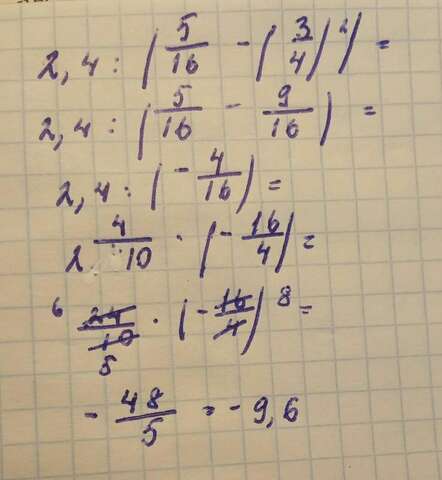 2,4 : (5/16 - (3/4)²) =
2,4 : (5/16 - 9/16) =
2,4 : (- 4/16) =
2 4/10 · (- 16/4) =
6 24/10 5 · (- 16/4) 8 =
- 48/5 = - 9,6